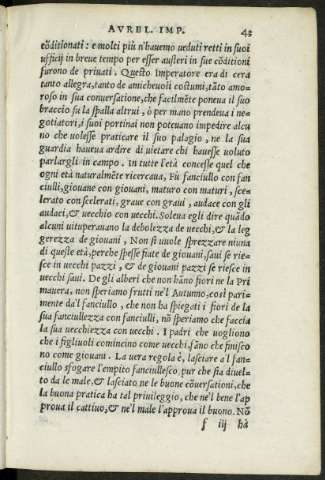 AVREL. IMP. 42
cõditionati: e molti più n'hauemo ueduti retti in suoi
ufficij in breue tempo per esser austeri in sue cõditioni
furono de priuati. Questo Imperatore era di cera
tanto allegra, tanto de amicheuoli costumi, tãto amo⸗
roso in sua conuersatione, che facilmẽte poneua il suo
braccio su la spalla altrui, ò per mano prendeua i ne⸗
gotiatori, i suoi portinai non poteuano impedire alcu
no che uolesse praticare il suo palagio, ne la sua
guardia haueua ardire di uietare chi hauesse uoluto
parlargli in campo. In tutte l'età concesse quel che
ogni età naturalmẽte ricercaua, Fù fanciullo con fan
ciulli, giouane con giouani, maturo con maturi, sce⸗
lerato con scelerati, graue con graui, audace con gli
audaci, & uecchio con uecchi. Soleua egli dire quãdo
alcuni uituperauano la debolezza de uecchi, & la leg
gerezza de giouani, Non si uuole sprezzare niuna
di queste età, perche spesse fiate de giouani, saui se rie⸗
sce in uecchi pazzi, & de giouani pazzi se riesce in
uecchi saui. De gli alberi che non hãno fiori ne la Pri
mauera, non speriamo frutti ne l'Autunno, cosi pari⸗
mente dal fanciullo, che non ha spiegati i fiori de la
sua fanciullezza con fanciulli, nõ speriamo che faccia
la sua uecchiezza con uecchi. I padri che uogliono
che i figliuoli comincino come uecchi, fãno che finisco
no come giouani. La uera regola è, lasciare al fan⸗
ciullo sfogare l'empito fanciullesco, pur che sia diuel⸗
to da le male, & lasciato ne le buone cõuersationi, che
la buona pratica ha tal priuileggio, che ne'l bene l'ap
proua il cattiuo, & ne'l male l'approua il buono. Nõ
f iij hà